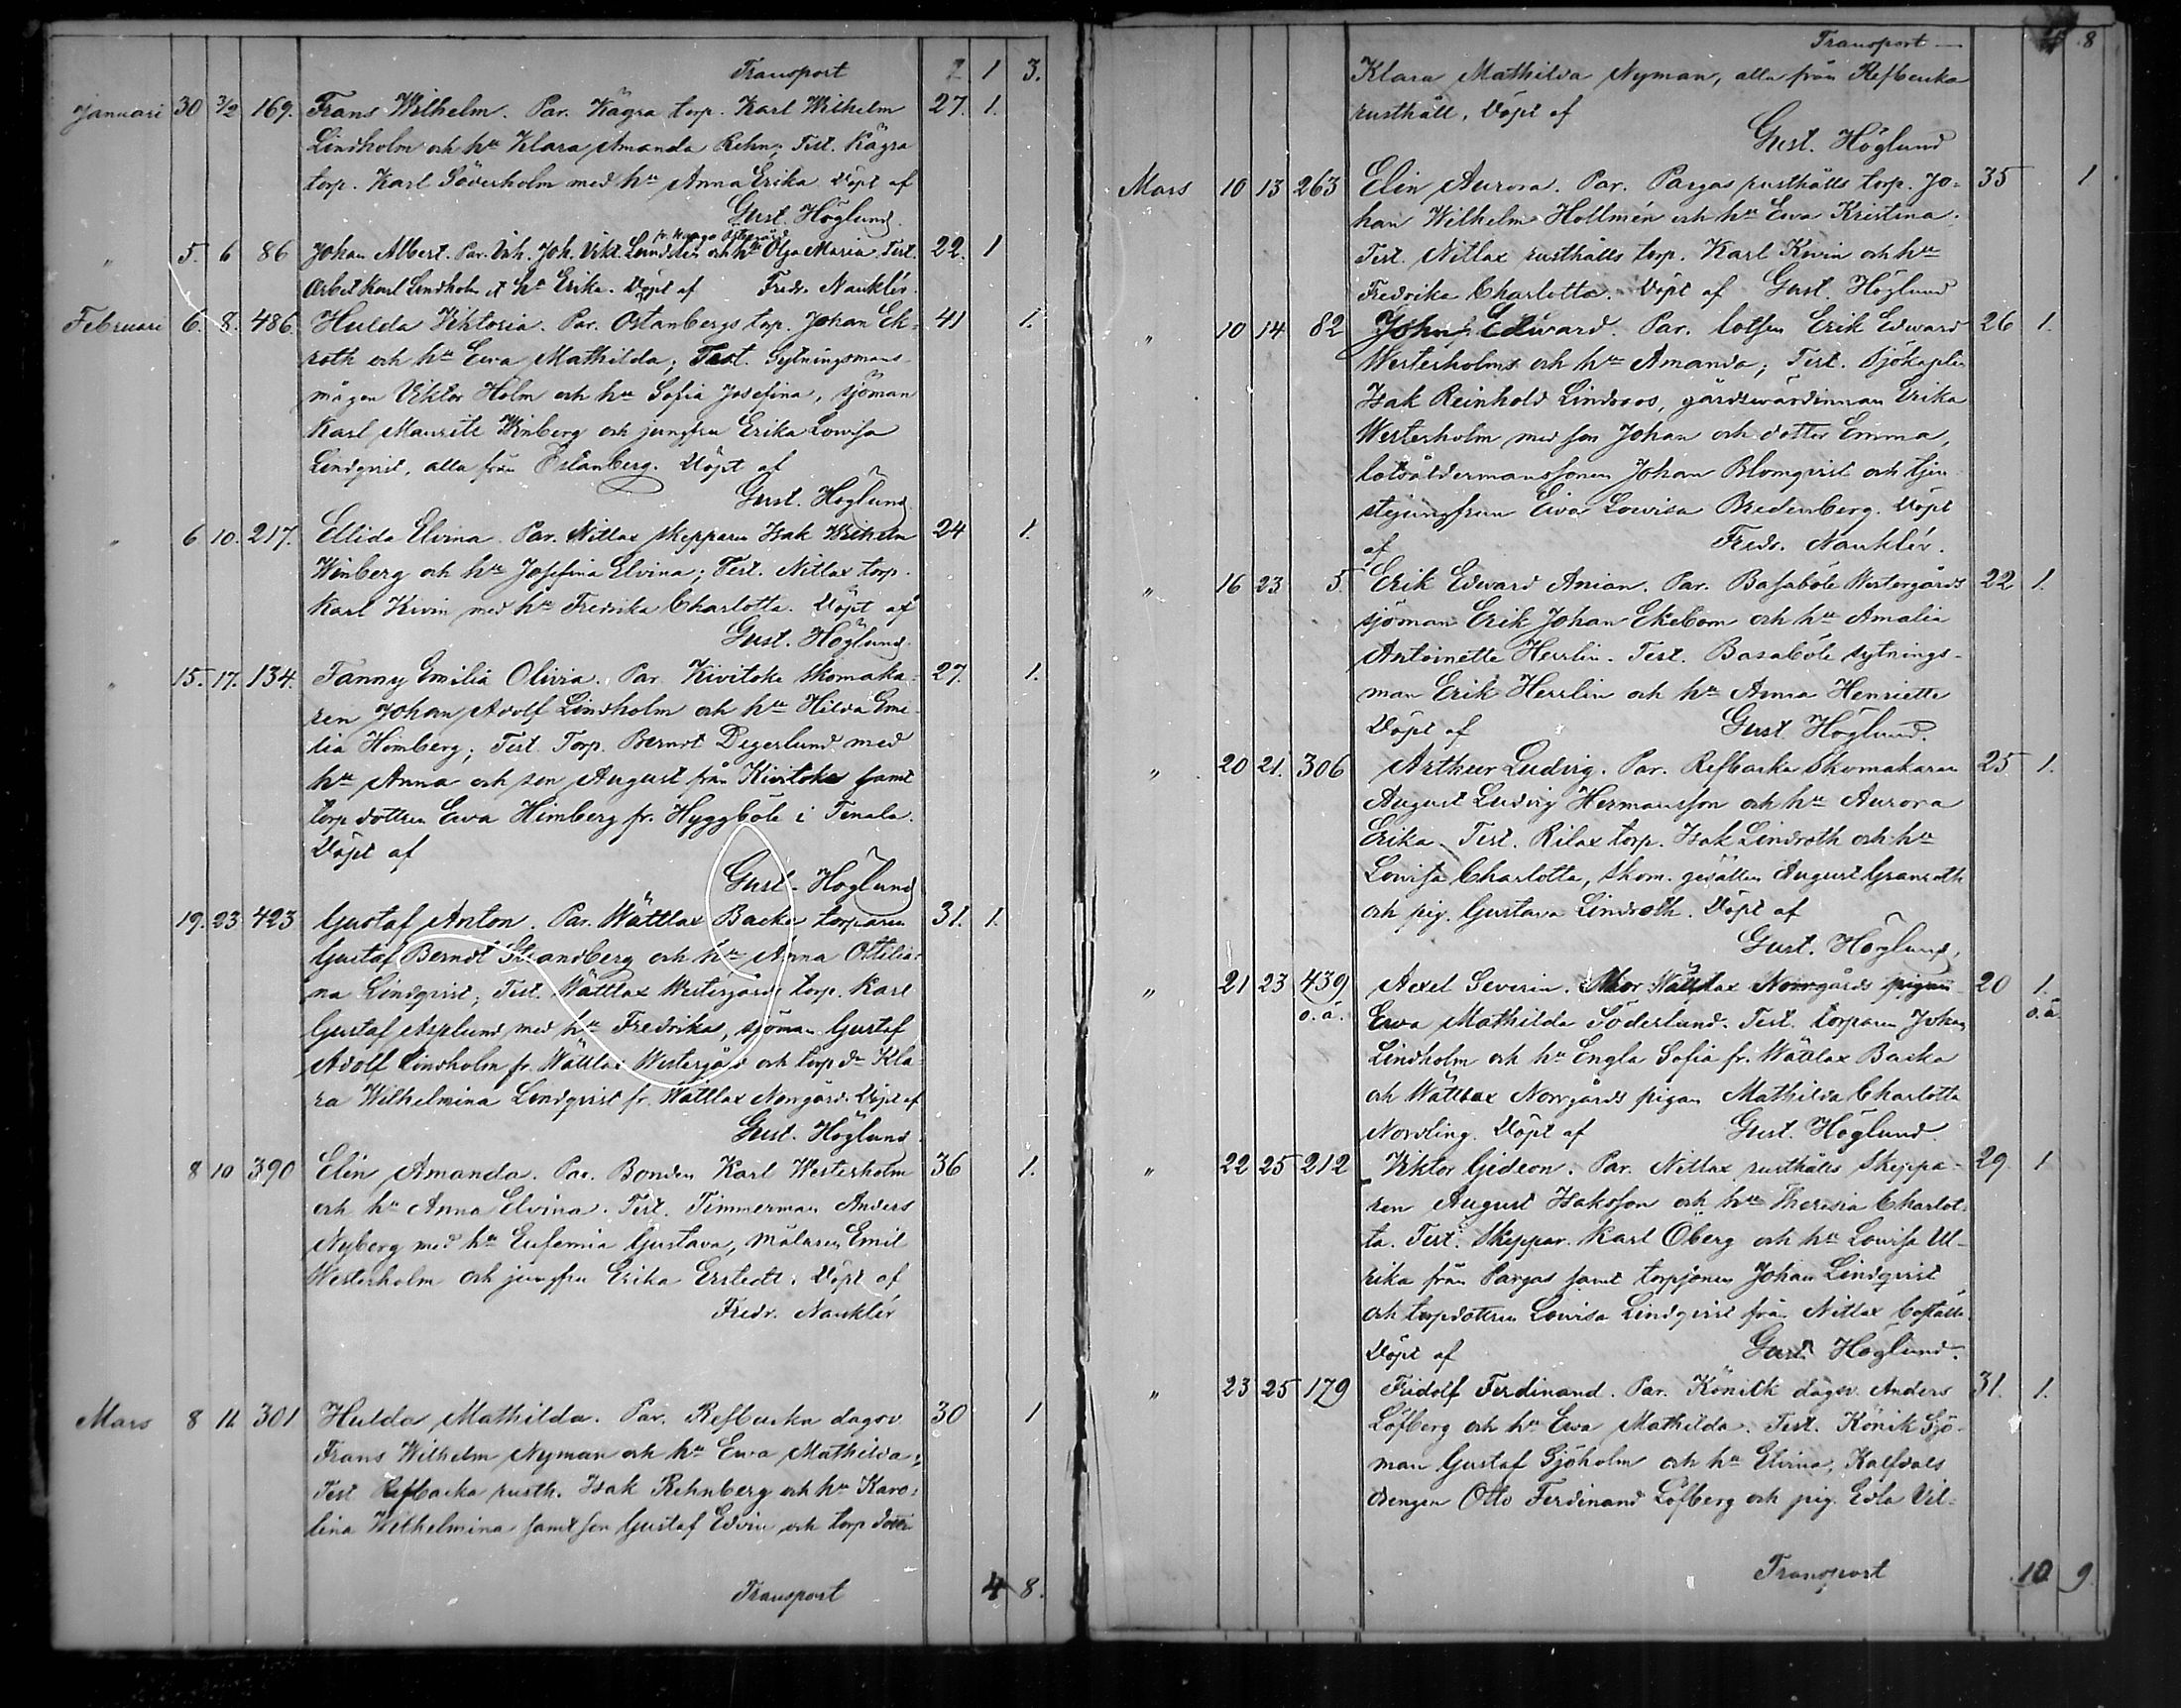 Transport 2 1 3.
Januari 30 3/2 169. Frans Wilhelm. Par. Kågra torp. Karl Wilhelm 27. 1.
Lindholm och hu Klara Amanda Rehn; Test. Kågra
torp. Karl Söderholm med hu Anna Erika Döpt af
Gust. Höglund.
" 5. 6 86 Johan Albert. Par. Joh. Vikt. Lundsten och hu Olga Maria Test. 22. 1
Arbet Karl Lindholm et hu Erika. Döpt af Fredr. Nauklér.
Februari 6. 8. 486. Hulda Viktoria. Par. Östanbergs torp. Johan Ek= 41 1.
roth och hu Ewa Mathilda; Test. Sytningsmans
mågen Viktor Holm och hu Sofia Josefina, sjöman
Karl Mauritz Winberg och jungfru Erika Lowisa
Lindqvist, alla från Östanberg. Döpt af
Gust. Höglund.
" 6 10. 217. Ellida Elvina. Par. Nitlax skepparen Isak Wilhelm 24 1.
Winberg och hu Josefina Elvina; Test. Nitlax torp.
Karl Kivin med hu Fredrika Charlotta. Döpt af
Gust. Höglund.
" 15. 17. 134. Fanny Emilia Olivia. Par. Kivitoke skomaka= 27. 1.
ren Johan Adolf Lindholm och hu Hilda Eme-
lia Himberg; Test. Torp. Berndt Degerlund med
hu Anna och son August från Kivitoke samt
torp dottren Ewa Himberg fr. Hyggböle i Tenala.
Döpt af
Gust. Höglund
19. 23 423 Gustaf Anton. Par. Wättlax Backa torparen 31. 1.
Gustaf Berndt Strandberg och hu Anna Ottilia=
na Lindqvist; Test. Wättlax Westergårds torp. Karl
Gustaf Asplund med hu Fredrika, sjöman Gustaf
Adolf Lindholm fr. Wättlax Westergård och torp dr Kla-
ra Wilhelmina Lindqvist fr. Wättlax Norrgård. Döpt af
Gust. Höglund.
8 10 390 Elin Amanda. Par. Bonden Karl Westerholm 36 1.
och hu Anna Elvina. Test. Timmerman Anders
Nyberg med hu Eufemia Gustava, målaren Emil
Westerholm och jungfru Erika Erstedt. Döpt af
Fredr. Nauklér
Mars 8 11 301 Hulda Mathilda. Par. Refbacka dagsv. 30 1
Frans Wilhelm Nyman och hu Ewa Mathilda;
Test Refbacka rusth. Isak Rehnberg och hu Karo=
lina Wilhelmina samt son Gustaf Edvin och torp dotter
Transport 4 8.
Transport 8
Klara Mathilda Nyman, alla från Refbacka
rusthåll. Döpt af
Gust. Höglund
Mars 10 13 263 Elin Aurora. Par. Pargas rusthålls torp. Jo= 35 1
han Wilhelm Hollmén och hu Ewa Kristina.
Test. Nitlax rusthålls torp. Karl Kivin och hu
Fredrika Charlotta. Döpt af Gust. Höglund
" 10 14 82 John Edward. Par. lotsen Erik Edward 26 1.
Westerholm och hu Amanda; Test. Sjökapten
Isak Reinhold Lindroos, gårdsvärdinnan Erika
Westerholm med son Johan och dotter Emma,
lotsåldermanssonen Johan Blomqvist och tjen
stejungfrun Ewa Lowisa Bredenberg. Döpt
af Fredr. Nauklér.
" 16 23 5. Erik Edward Anian. Par. Basaböle Westergårds 22 1.
sjöman Erik Johan Ekebom och hu Amalia
Antoinette Herrlin. Test. Basaböle sytnings-
man Erik Herrlin och hu Anna Henriette
Döpt af Gust Höglund.
" 20 21. 306 Arthur Ludvig. Par. Refbacka Skomakaren 25 1.
August Ludvig Hermansson och hu Aurora
Erika. Test. Rilax torp. Isak Lindroth och hu
Lowisa Charlotta, skom. gesällen August Granroth
och pig. Gustava Lindroth. Döpt af
Gust. Höglund,
" 21 23 439 Axel Severin. Mor Wättlax Norrgårds pigan 20 1.
o.ä. Ewa Mathilda Söderlund. Test. torparen Johan o.ä.
Lindholm och hu Engla Sofia fr. Wättlax Backa
och Wättlax Norrgårds pigan Mathilda Charlotta
Nordling. Döpt af Gust. Höglund.
" 22 25 212 Viktor Gideon. Par. Nitlax rusthålls Skeppa- 29. 1
ren August Isaksson och hu Theresia Charlot-
ta. Test. Skeppar. Karl Öberg och hu Lowisa Ul-
rika från Pargas samt torpsonen Johan Lindqvist
och torpdottren Lowisa Lindqvist från Nitlax Boställe.
Döpt af Gust. Höglund.
" 23 25 179 Fridolf Ferdinand. Par. Könick dagsv. Anders 31. 1.
Löfberg och hu Ewa Mathilda. Test. Könik Sjö-
man Gustaf Sjöholm och hu Elvina, Kalfdals
drengen Otto Ferdinand Löfberg och pig. Edla Vil=
Transport 10 9.